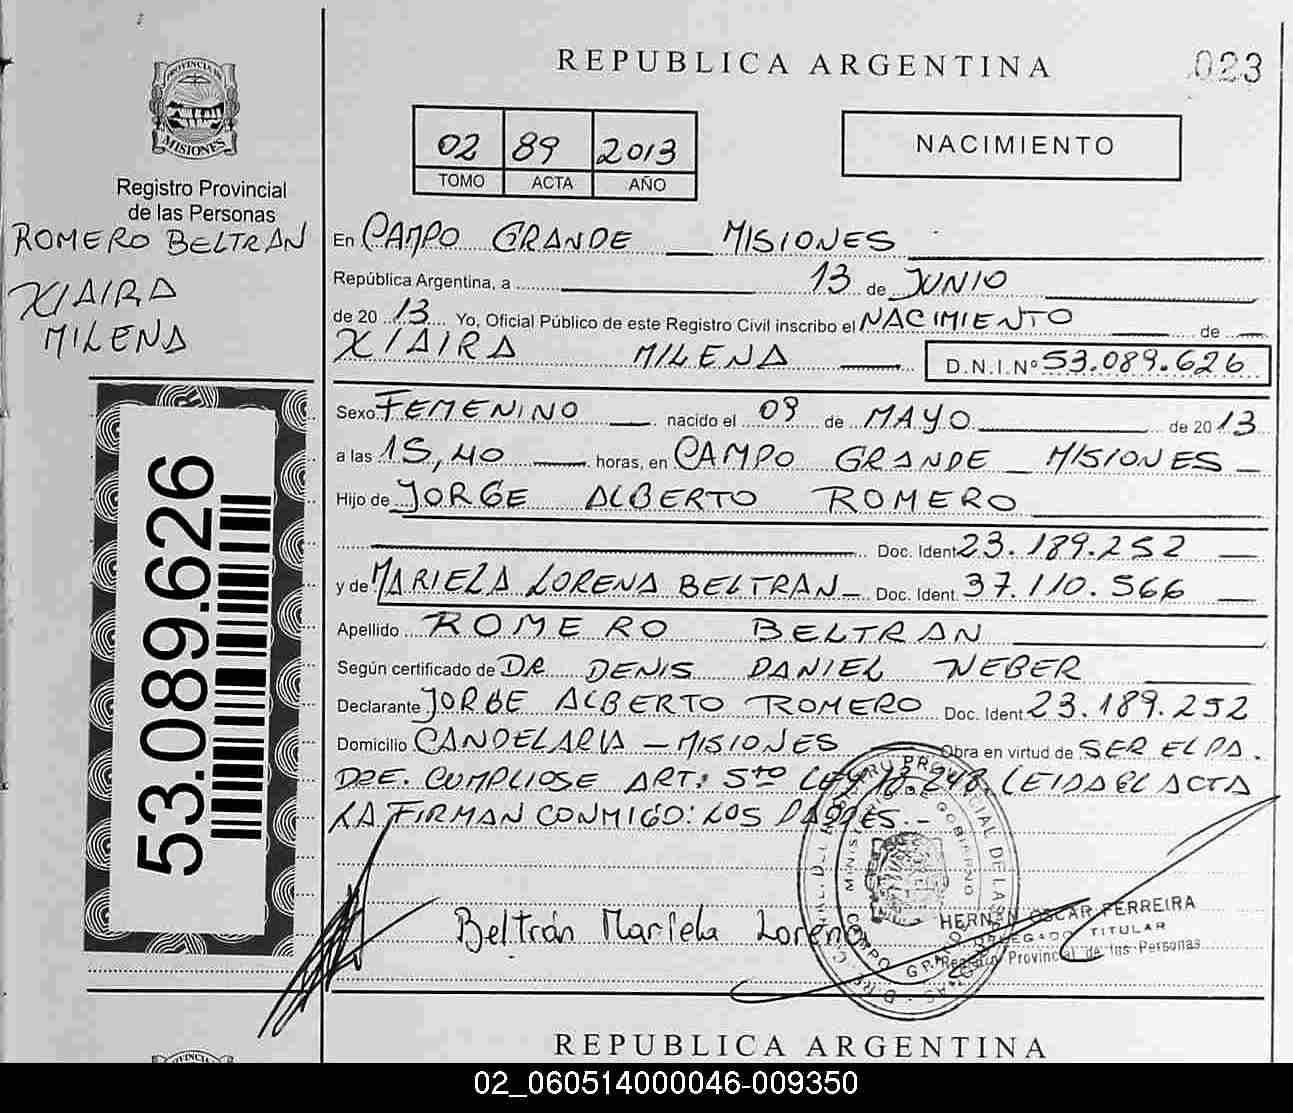 REPUBLICA ARGENTINA
023
PROVINCIA DE
MISIONES
Registro Provincial
de las Personas
ROMERO BELTRAN
XIAIRA
MILENA
53.089.626
02 89 2013
TOMO ACTA AÑO
NACIMIENTO
En CAMPO GRANDE MISIONES
República Argentina, a 13 de JUNIO
de 20 13 Yo, Oficial Público de este Registro Civil inscribo el NACIMIENTO de
XIAIRA MILENA D.N.I. Nº 53.089.626
Sexo FEMENINO nacido el 09 de MAYO de 20 13
a las 15,40 horas, en CAMPO GRANDE MISIONES
Hijo de JORGE ALBERTO ROMERO
Doc. Ident 23.189.252
y de MARIELA LORENA BELTRAN Doc. Ident. 37.110.566
Apellido ROMERO BELTRAN
Según certificado de DR DENIS DANIEL NEBER
Declarante JORGE ALBERTO ROMERO Doc. Ident 23.189.252
Domicilio CANDELARIA - MISIONES Obra en virtud de SER EL PA.
DRE. CUMPLIOSE ART: 5to LEY 17.248. LEIDA EL ACTA
LA FIRMAN CONMIGO: LOS PADRES.-
Beltrán Mariela Lorena
HERNAN OSCAR FERREIRA
DELEGADO TITULAR
Registro Provincial de las Personas
REPUBLICA ARGENTINA
02_060514000046-009350